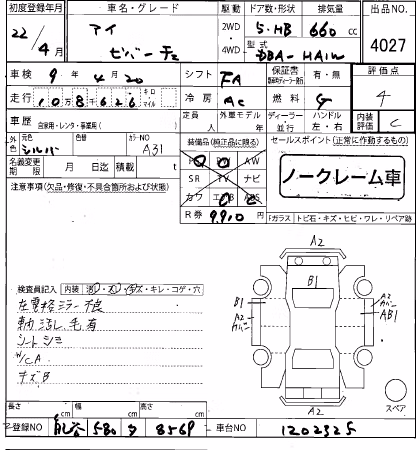 初度登録年月 車名・グレード 駆動 ドア数・形状 排気量 出品NO
22/4月 アイ 2WD 5.HB 660cc
4WD 型式 DBA-HA1W 4027
車検 9年4月20 シフト FA 保証書 有・無 評価点
走行 108,626 キロ マイル 冷房 AC 燃料 G 4
車歴 自家用・レンタ・事業用( ) 定員 人 外車モデル 年 ディーラー 並行 ハンドル 左・右 内装評価 C
外色 元色 シルバー 色替 カラーNO A31 装備品(純正品に限る) セールスポイント(正常に作動するもの)
名義変更期限 月 日迄 積載 t AW ノークレーム車
注意事項(欠品・修復・不具合箇所および状態) SR TV ナビ
カワ ABS
R券 9,910 Fガラス トビ石・キズ・ヒビ・ワレ・リペア跡
検査員記入 内装 キレ・コゲ・穴
左電格ミラー不良
シートシミ
W/CA
キズB
A2
B1
B1
A2
AB1
A2
スペア
長さ cm 幅 cm 高さ cm
登録NO 580 8569 車台NO 1202325